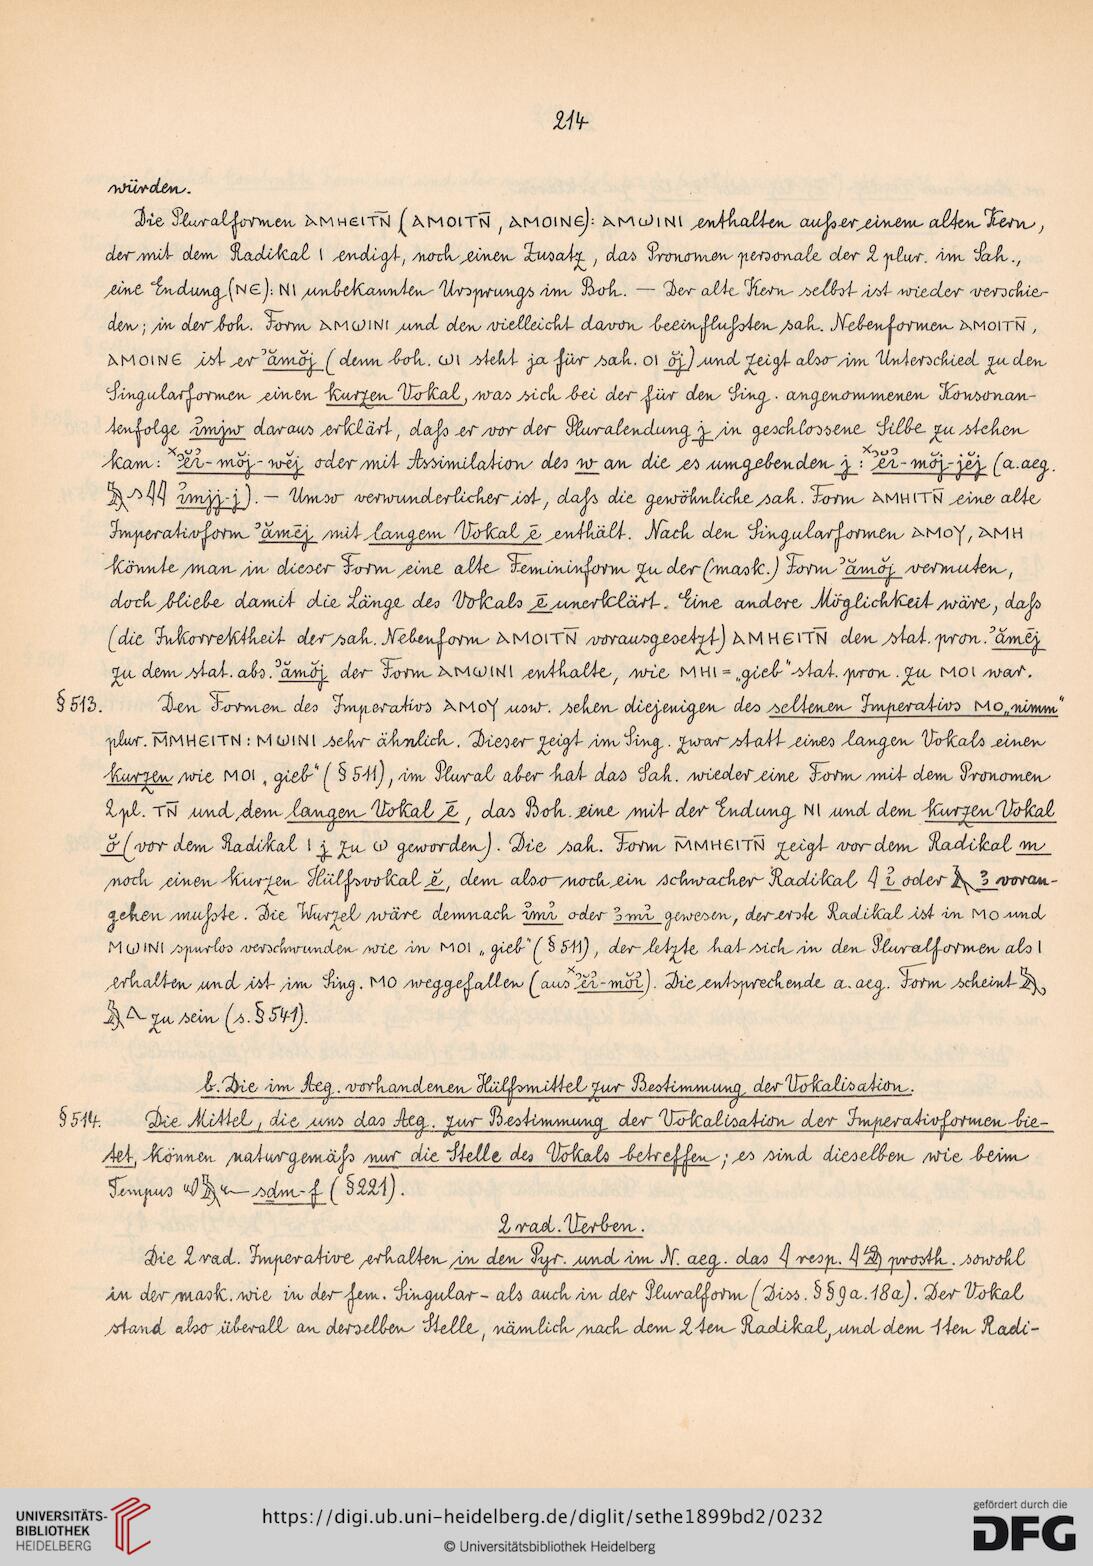 214
würden.
Die Pluralformen ⲀⲘⲎⲈⲒⲦⲚ̄ (ⲀⲘⲞⲒⲦⲚ̄, ⲀⲘⲞⲒⲚⲈ): ⲀⲘⲰⲒⲚⲒ enthalten außer einem alten Kern,
der mit dem Radikal Ⲓ endigt, noch einen Zusatz, das Pronomen personale der 2 plur. im Sah.,
eine Endung (ⲚⲈ): ⲚⲒ unbekannten Ursprungs im Boh. — Der alte Kern selbst ist wieder verschie-
den; in der boh. Form ⲀⲘⲰⲒⲚⲒ und den vielleicht davon beeinflußten sah. Nebenformen ⲀⲘⲞⲒⲦⲚ̄,
ⲀⲘⲞⲒⲚⲈ ist er ʾămŏj (denn boh. ⲰⲒ steht ja für sah. ⲞⲒ ŏj) und zeigt also im Unterschied zu den
Singularformen einen kurzen Vokal, was sich bei der für den Sing. angenommenen Konsonan-
tenfolge ı͗mjw daraus erklärt, daß er vor der Pluralendung j in geschlossene Silbe zu stehen
kam: ˣʾĕı͗-mŏj-wĕj oder mit Assimilation des w an die es umgebenden j: ˣʾĕı͗-mŏj-jĕj (a.aeg.
ı͗mjj-j). — Umso verwunderlicher ist, daß die gewöhnliche sah. Form ⲀⲘⲎⲒⲦⲚ̄ eine alte
Imperativform ʾămēj mit langem Vokal ē enthält. Nach den Singularformen ⲀⲘⲞⲨ, ⲀⲘⲎ
könnte man in dieser Form eine alte Femininform zu der (mask.) Form ʾămŏj vermuten,
doch bliebe damit die Länge des Vokals ē unerklärt. Eine andere Möglichkeit wäre, daß
(die Inkorrektheit der sah. Nebenform ⲀⲘⲞⲒⲦⲚ̄ vorausgesetzt) ⲀⲘⲎⲈⲒⲦⲚ̄ den stat. pron. ʾămēj
zu dem stat. abs. ʾămŏj der Form ⲀⲘⲰⲒⲚⲒ enthalte, wie ⲘⲎⲒ = „gieb“ stat. pron. zu ⲘⲞⲒ war.
§ 513. Den Formen des Imperativs ⲀⲘⲞⲨ usw. sehen diejenigen des seltenen Imperativs ⲘⲞ „nimm“
plur. Ⲙ̄ⲘⲎⲈⲒⲦⲚ: ⲘⲰⲒⲚⲒ sehr ähnlich. Dieser zeigt im Sing. zwar statt eines langen Vokals einen
kurzen wie ⲘⲞⲒ „gieb“ (§ 511), im Plural aber hat das Sah. wieder eine Form mit dem Pronomen
2 pl. ⲦⲚ̄ und dem langen Vokal ē, das Boh. eine mit der Endung ⲚⲒ und dem kurzen Vokal
ŏ (vor dem Radikal Ⲓ j zu Ⲱ geworden). Die sah. Form Ⲙ̄ⲘⲎⲈⲒⲦⲚ̄ zeigt vor dem Radikal m
noch einen kurzen Hülfsvokal ĕ, dem also noch ein schwacher Radikal 𓇋 ı͗ oder 𓄿 3 voran-
gehen mußte. Die Wurzel wäre demnach ı͗mı͗ oder 3mı͗ gewesen, der erste Radikal ist in ⲘⲞ und
ⲘⲰⲒⲚⲒ spurlos verschwunden wie in ⲘⲞⲒ „gieb“ (§ 511), der letzte hat sich in den Pluralformen als Ⲓ
erhalten und ist im Sing. ⲘⲞ weggefallen (aus ˣʾĕı͗-mŏı͗). Die entsprechende a. aeg. Form scheint
zu sein (s. § 541).
b. Die im Aeg. vorhandenen Hülfsmittel zur Bestimmung der Vokalisation.
§ 514. Die Mittel, die uns das Aeg. zur Bestimmung der Vokalisation der Imperativformen bie-
tet, können naturgemäß nur die Stelle des Vokals betreffen; es sind dieselben wie beim
Tempus sdm-f (§ 221).
2 rad. Verben.
Die 2 rad. Imperative erhalten in den Pyr. und im N. aeg. das 𓇋 resp. prosth. sowohl
in der mask. wie in der fem. Singular- als auch in der Pluralform (Diss. §§ 9a. 18a). Der Vokal
stand also überall an derselben Stelle, nämlich nach dem 2ten Radikal, und dem 1ten Radi-
UNIVERSITÄTS-
BIBLIOTHEK
HEIDELBERG
https://digi.ub.uni-heidelberg.de/diglit/sethe1899bd2/0232
© Universitätsbibliothek Heidelberg
gefördert durch die
DFG